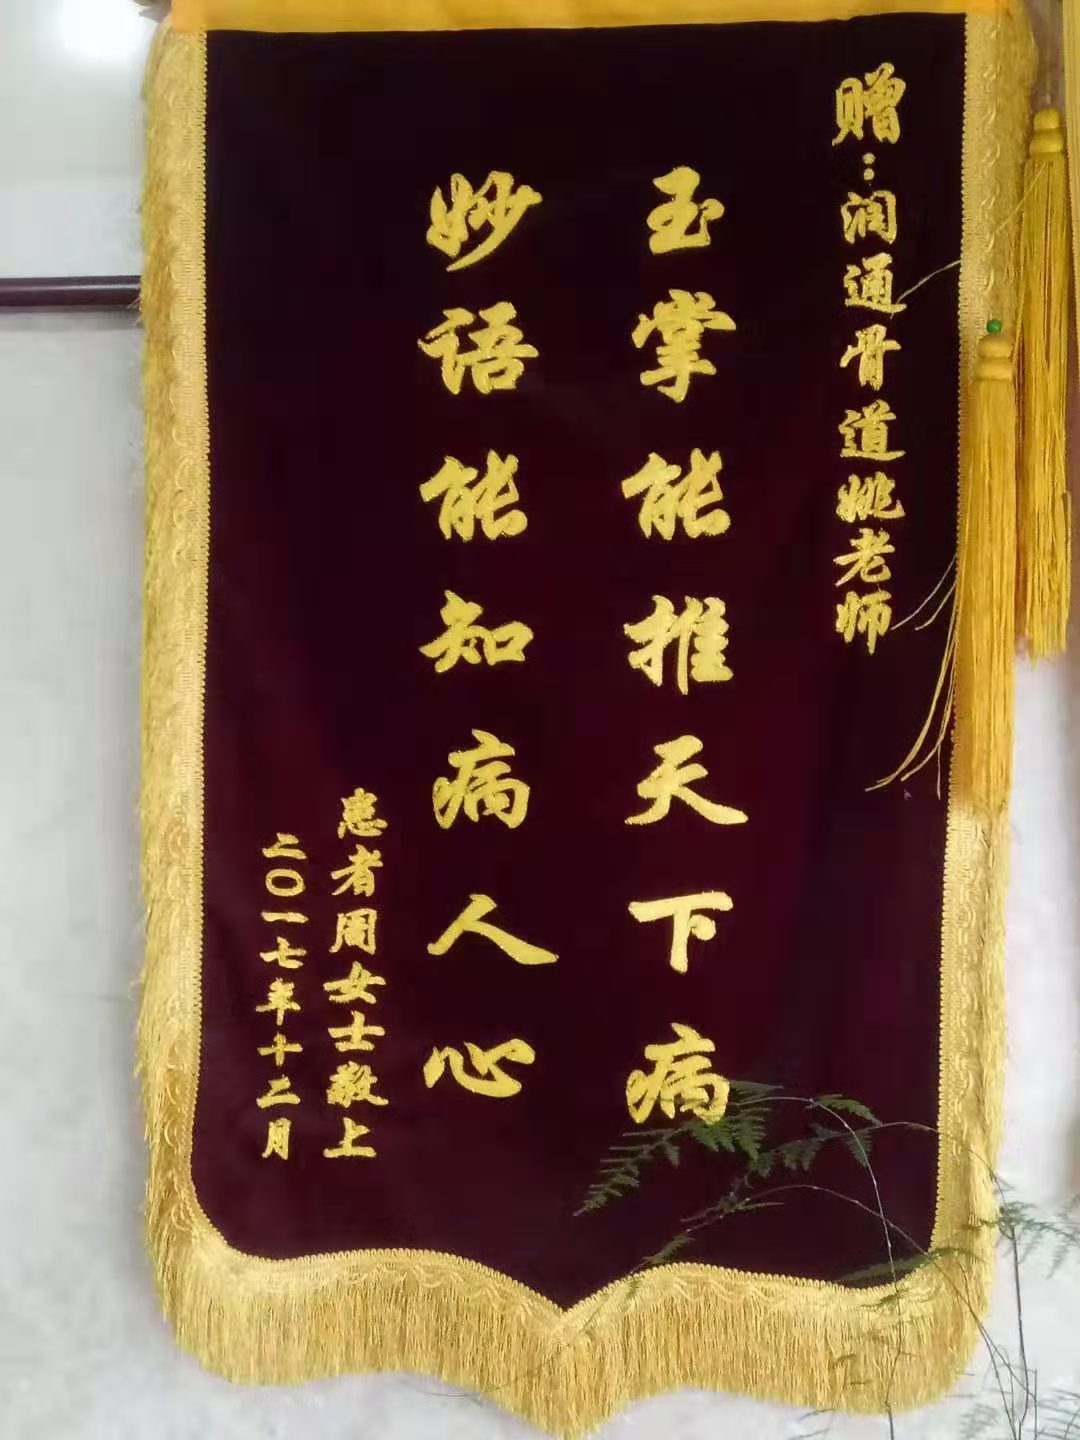 赠：润通骨道姚老师
玉掌能推天下病
妙语能知病人心
患者周女士敬上
二〇一七年十二月